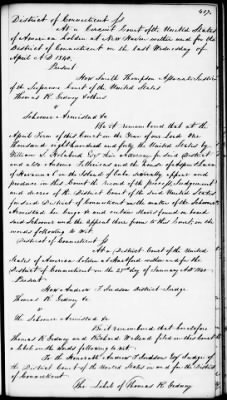 417.
District of Connecticut ss
At a Circuit Court of the United States
of America holden at New Haven within and for the
District of Connecticut on the last Wednesday of
April A.D. 1840.
Present
Hon Smith Thompson Associate Justice
of the Supreme Court of the United States
Thomas R. Gedney & others
v
Schooner Amistad &c
Be it remembered that at the
April Term of this Court in the Year of our Lord One
thousand eight hundred and forty the United States by
William S. Holabird Esq their Attorney for said District
and also Antonio Tellincas and the House of Aspe & Laca
of Havanna in the Island of Cuba severally appear and
produce in this Court the record of the process Judgement
and decree of the District Court of the said United States
for said District of Connecticut in the matter of the Schooner
Amistad her Cargo & and certain Slaves found on board
said Schooner and the appeal there from to this Court, in the
words following to wit.
District of Connecticut ss
At a District Court of the United
States of America holden at Hartford within and for the
District of Connecticut on the 23rd day of January A.D. 1840.
Present
Hon Andrew T. Judson District Judge
Thomas R. Gedney &c
v
The Schooner Amistad &c
Be it remembered that heretofore
Thomas R. Gedney and Richard W. Meade filed in this Court
a Libel in the words following to wit.
To the Honorable Andrew T. Judson Esqr Judge of
the District Court of the United States in and for the District
of Connecticut
The Libel of Thomas R. Gedney